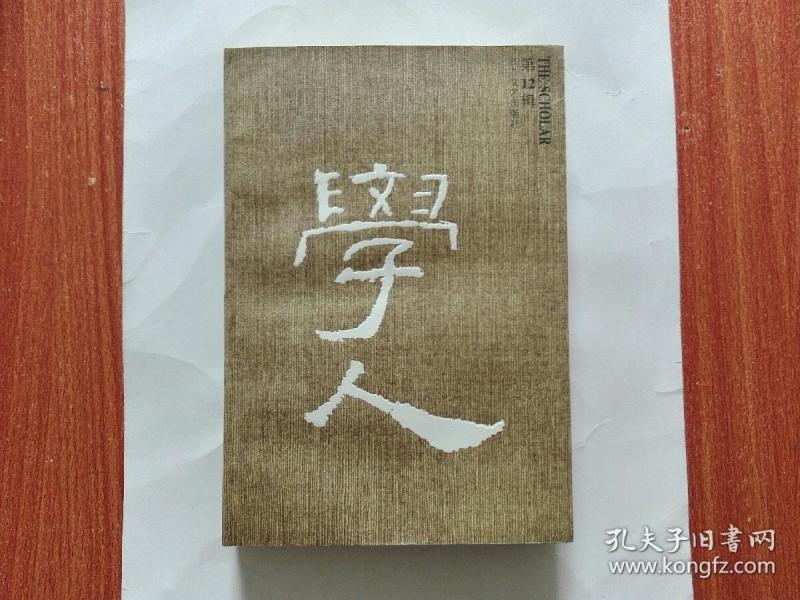 THE SCHOLAR
第12辑
學人
孔夫子旧書网
www.kongfz.com